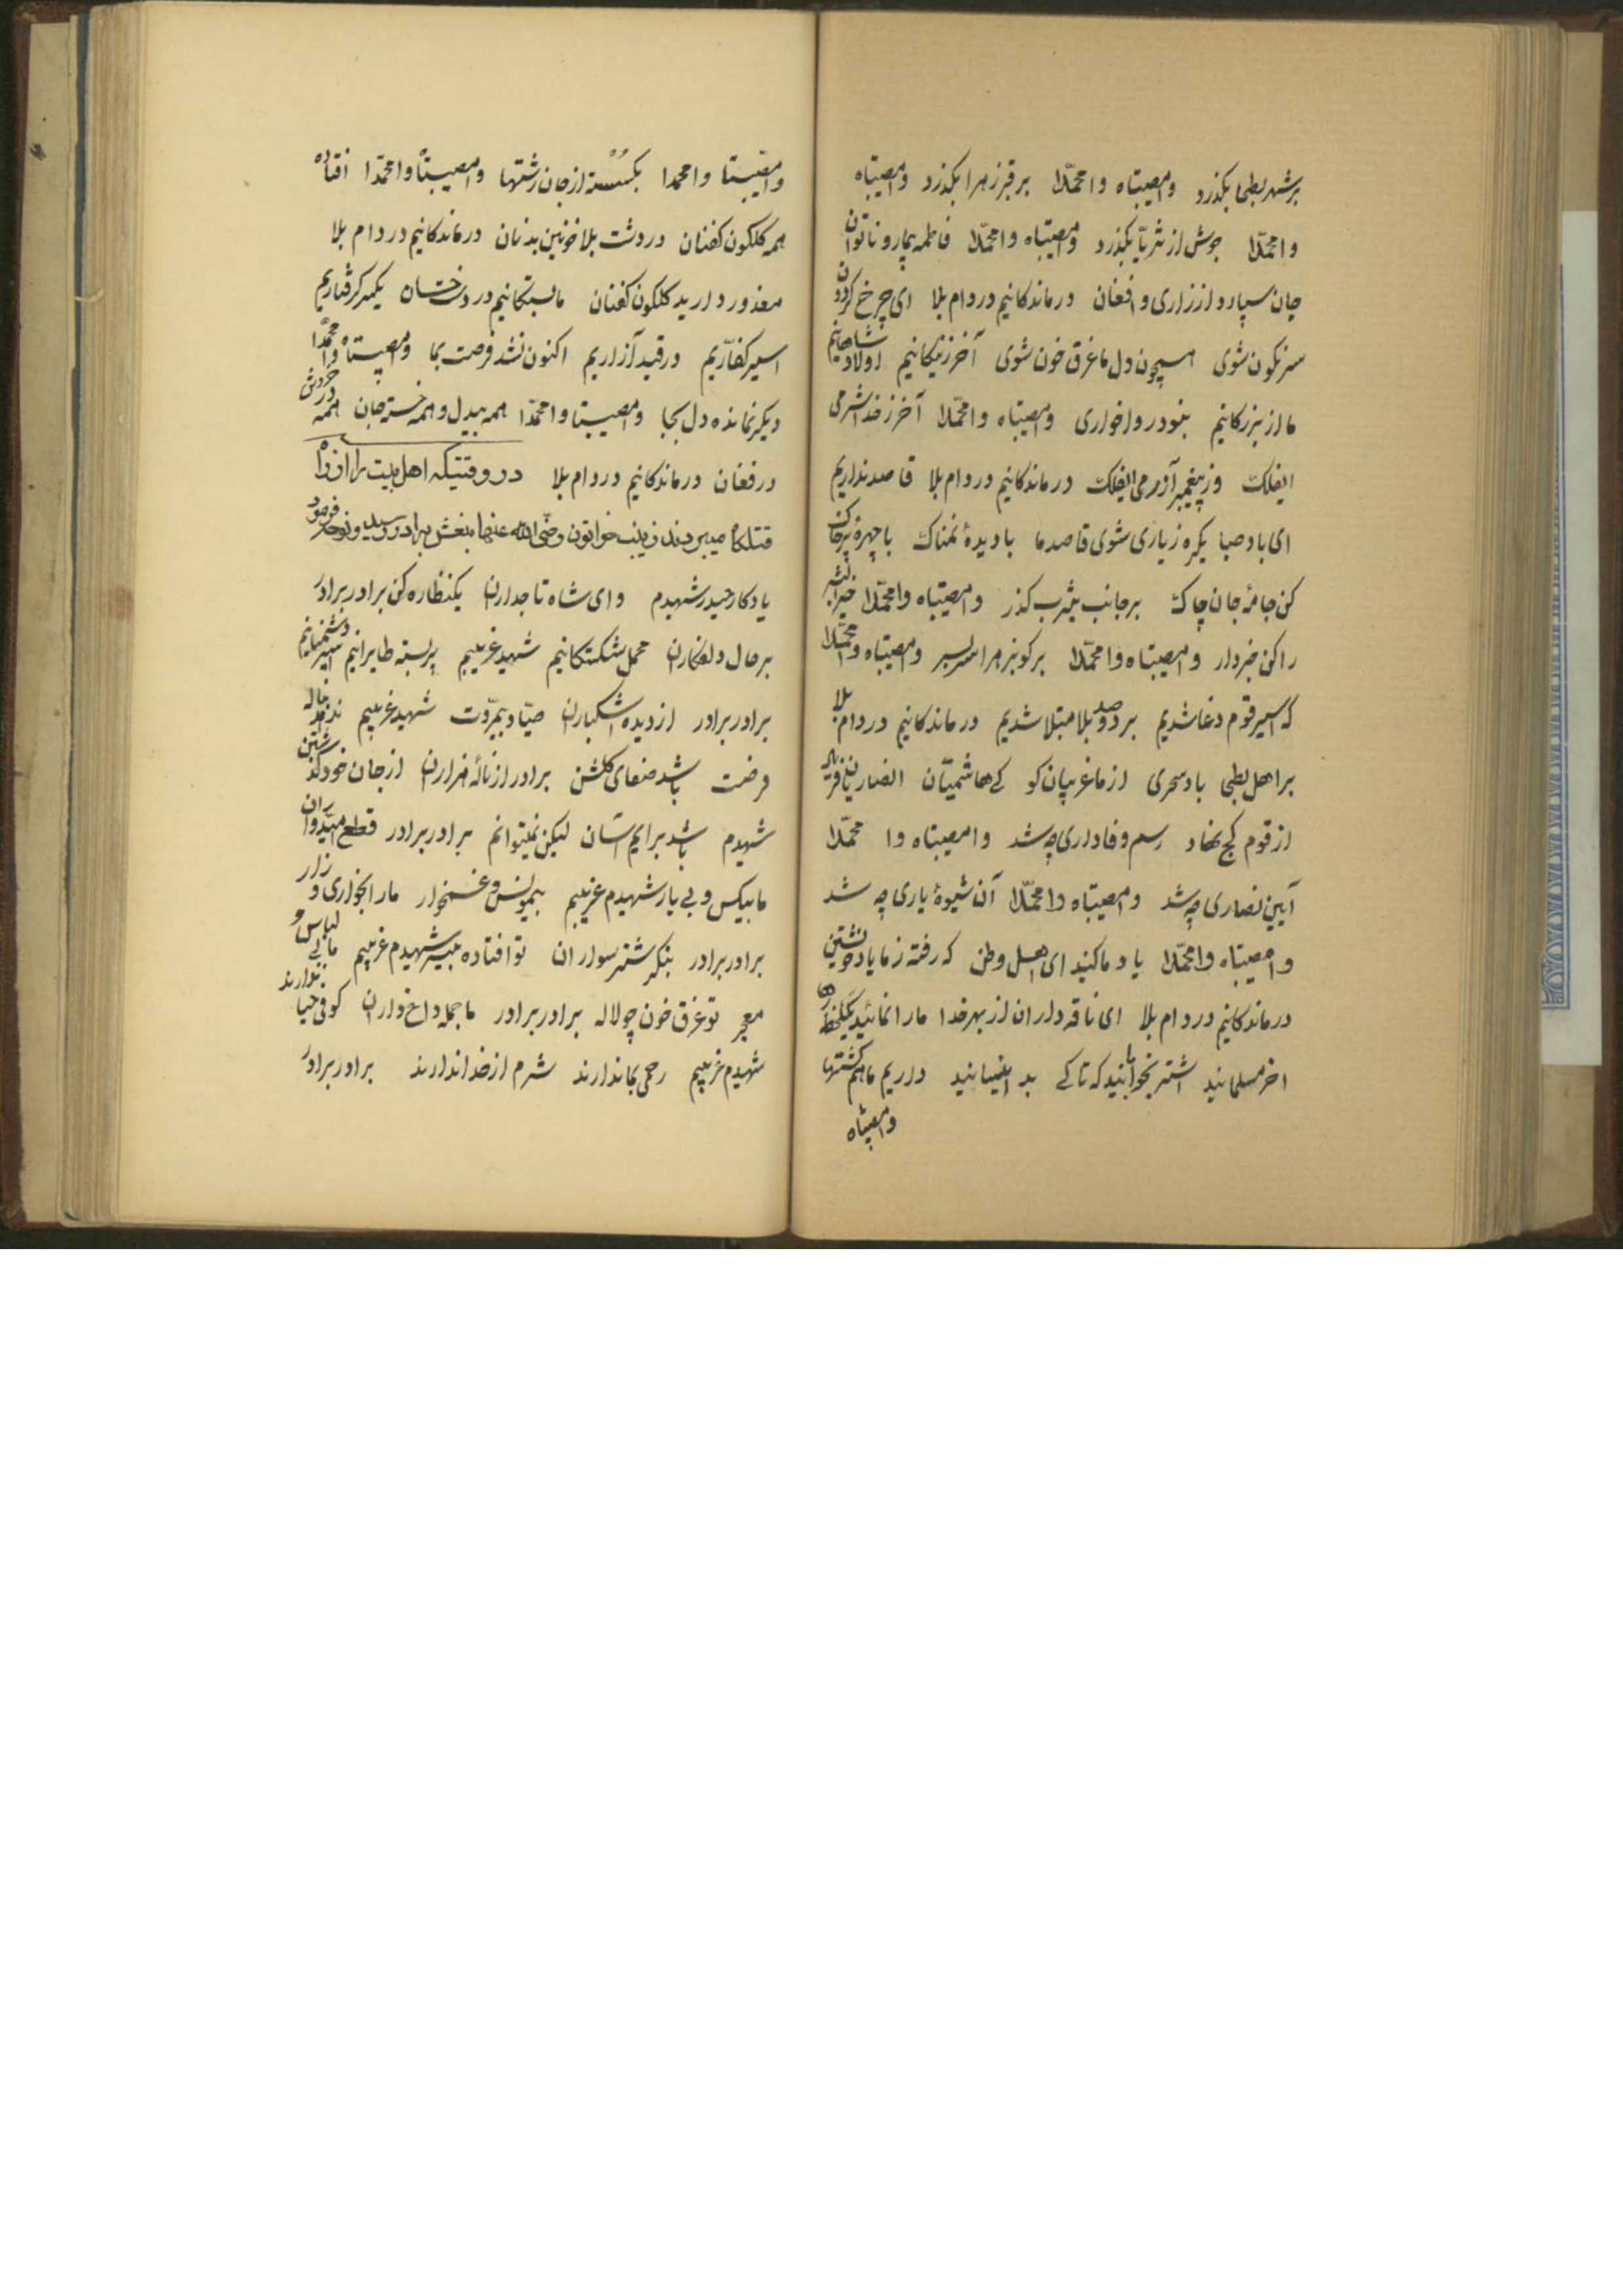 برشهر بطحا بکذرد وامصیبتاه وامحمّدا بر قبر زهرا بکذرد وامصیبتاه
وامحمّدا جوش از ثریّا بکذرد وامصیبتاه وامحمّدا فاطمه بیمار و ناتوان
جان سپارد از زاری و افغان درماندکانیم در دام بلا ای چرخ کردون
سرنکون شوی همچون دل ما غرق خون شوی آخر ز نیکانیم اولاد شاهانیم
ما از بزرکانیم بنود روا خواری وامصیبتاه وامحمّدا آخر ز خدا شرمی
ایفلک وز پیغمبر آزرمی ایفلک درماندکانیم در دام بلا قاصد نداریم
ای باد صبا یکره ز یاری شوی قاصد ما با دیدهٔ نمناک با چهرهٔ پرخاک
کن جامهٔ جان چاک بر جانب یثرب کذر وامصیبتاه وامحمّدا خیرالبشر
را کن خبردار وامصیبتاه وامحمّدا برکو بزهرا سربسر وامصیبتاه وامحمّدا
که اسیر قوم دغا شدیم بر دو صد بلا مبتلا شدیم درماندکانیم در دام بلا
بر اهل بطحی باد سحری از ما غریبان کو کے هاشمیّان انصاریان فریاد
از قوم کج نهاد رسم وفاداری چه شد وامصیبتاه وا محمّدا
آیین نصاری چه شد وامصیبتاه وامحمّدا آن شیوهٔ یاری چه شد
وامصیبتاه وامحمّدا یاد ما کنید ای اهل وطن که رفته ز ما یاد خویشتن
درماندکانیم در دام بلا ای ناقه داران از بهر خدا ما را نمائید یکلحظه رها
اخر مسلمانید اشتر بخوابانید که تا کے بد افغانید داریم ما هم کشتها
وامصیبتاه
وامصیبتا وامحمدا بکسسته از جان رشتها وامصیبتا وامحمّدا افتاده
همه کلکون کفنان در دشت بلا خونین بدنان درماندکانیم در دام بلا
معذور دارید کلکون کفنان ما بستکانیم در دست خسان یکسر کرفتاریم
اسیر کفّاریم در قید آزاریم اکنون نشد فرصت بما وامصیبتاه وامحمّدا
دیکر نمانده دل بجا وامصیبتا وامحمّدا همه بیدل و همه خسته جان همه در خروش
در فغان درماندکانیم در دام بلا در وقتیکه اهل بیت را از راه
قتلکاه میبردند زینب خواتون رضی الله عنها بنعش برادر رسید و نوحه کرد فرمود
یادکار حیدر شهیدم وای شاه تاجداران یکنظاره کن برادر برادر
بر حال دلفکاران محمل شکستکانیم شهید غریبم پربسته طایرانیم اسیر دشمنانیم
برادر برادر از دیده اشکباران صیّاد بیمرّوت شهید غریبم ندهد بناله
فرصت باشد صفای کلشن برادر از نالهٔ هزاران از جان خود کذشتن
شهیدم باشد برایم آسان لیکن نمیتوانم برادر برادر قطع امیدواران
ما بیکس و بے یار شهیدم غریبم بیمونس و غمخوار ما را بخواری و زار
برادر برادر بنکر شتر سواران تو افتاده بیسر شهیدم غریبم ما بے لباس و
معجر تو غرق خون چو لاله برادر برادر ما جمله داغ داران کوفی حیا ندارند
شهیدم غریبم رحمی بما ندارند شرم از خدا ندارند برادر برادر